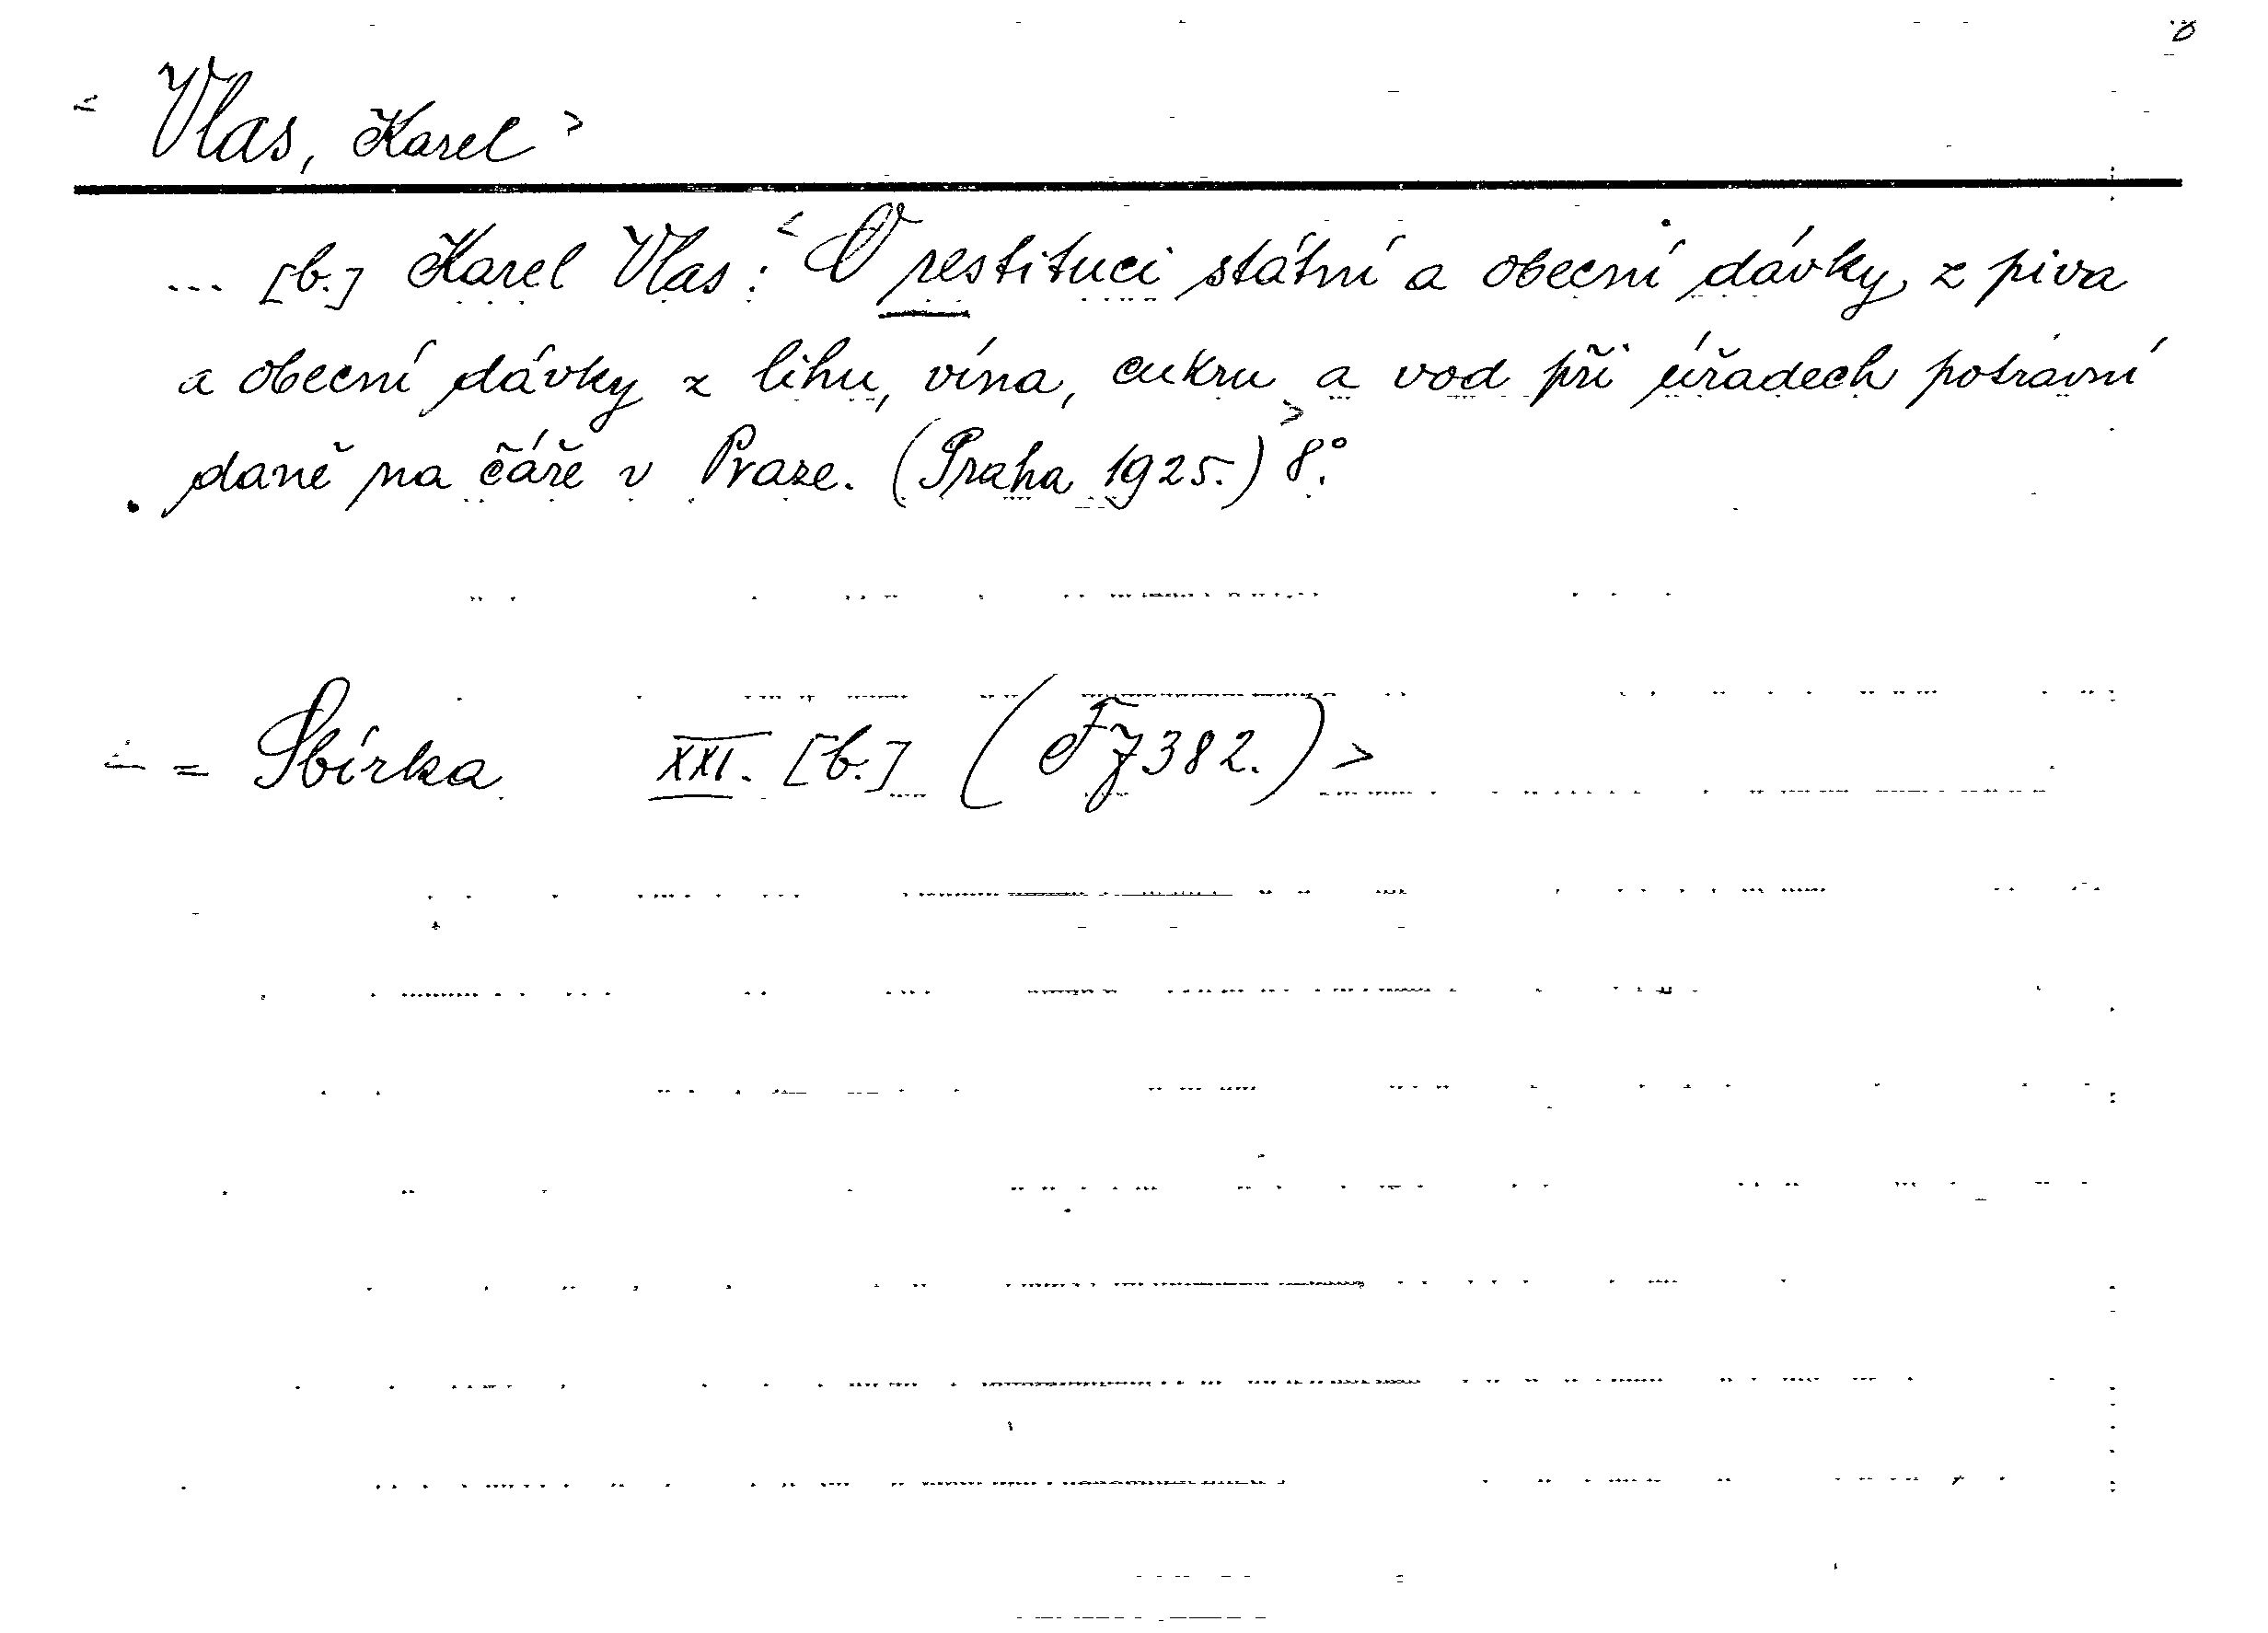 < Vlas, Karel >
... [b.] Karel Vlas: < O restituci státní a obecní dávky z piva
a obecní dávky z lihu, vína, cukru a vod při úřadech potravní
daně na čáře v Praze. (Praha 1925.) > 8°.
= Sbírka XXI. [b.] (F J 382.) >